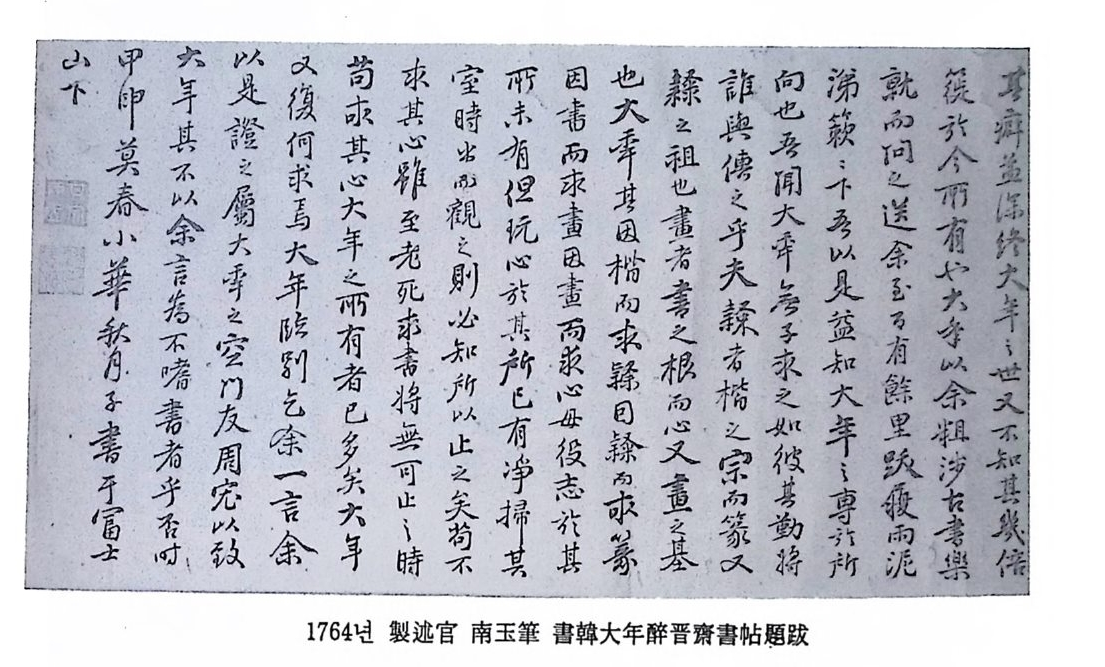 其癖益深終大年之世又不知其幾倍
蓰於今所有也大年以余粗涉古書樂
就而問之送余至百有餘里跋履雨泥
涕簌〻下吾以是益知大年之專於所
向也吾聞大年無子求之如彼其勤將
誰與傳之乎夫隸者楷之宗而篆又
隸之祖也畫者書之根而心又畫之基
也大年其因楷而求隸因隸而求篆
因書而求畫因畫而求心毋役志於其
所未有但玩心於其所已有淨掃其
室時出而觀之則必知所以止之矣苟不
求其心雖至老死求書將無可止之時
苟求其心大年之所有者已多矣大年
又復何求焉大年臨別乞余一言余
以是證之屬大年之空門友周宏以致
大年其不以余言為不嗜書者乎否時
甲申莫春小華秋月子書于富士
山下
1764년 製述官 南玉筆 書韓大年醉晋齋書帖題跋